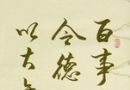 百事
令德
以大